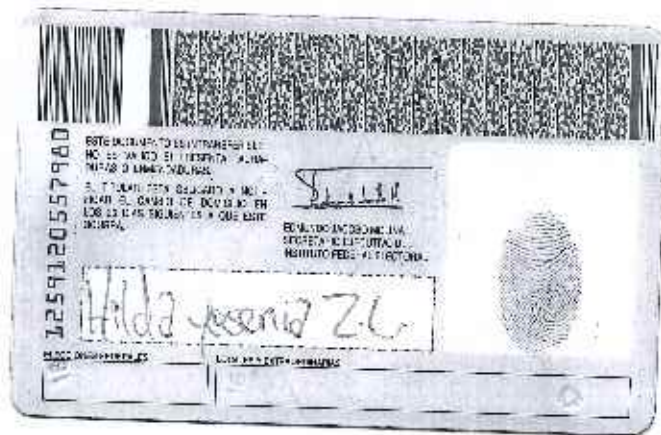 ESTE DOCUMENTO ES INTRANSFERIBLE
NO ES VALIDO SI PRESENTA TACHA-
DURAS O ENMENDADURAS.
EL TITULAR ESTA OBLIGADO A NOTI-
FICAR EL CAMBIO DE DOMICILIO EN
LOS 30 DIAS SIGUIENTES A QUE ESTE
OCURRA.
EDMUNDO JACOBO MOLINA
SECRETARIO EJECUTIVO DEL
INSTITUTO FEDERAL ELECTORAL
1259120557980
Hilda yesenia Z.L.
ELECCIONES FEDERALES
LOCALES Y EXTRAORDINARIAS